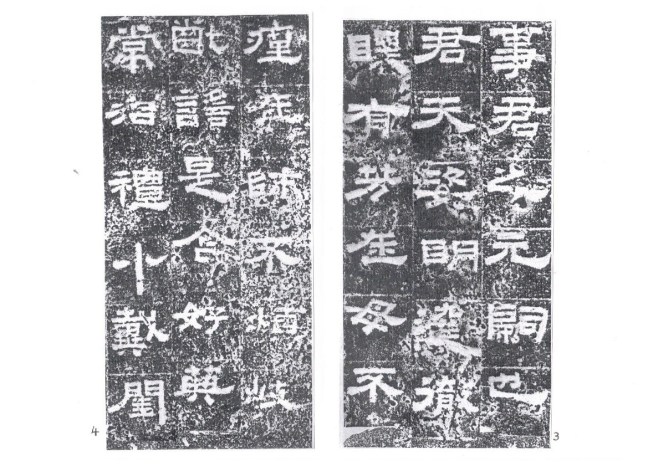 事君之元嗣也
君天姿明達徹
聰有芳在母不
瘽在師不煩岐
齔謠是含好典
常治禮小戴閨
3
4